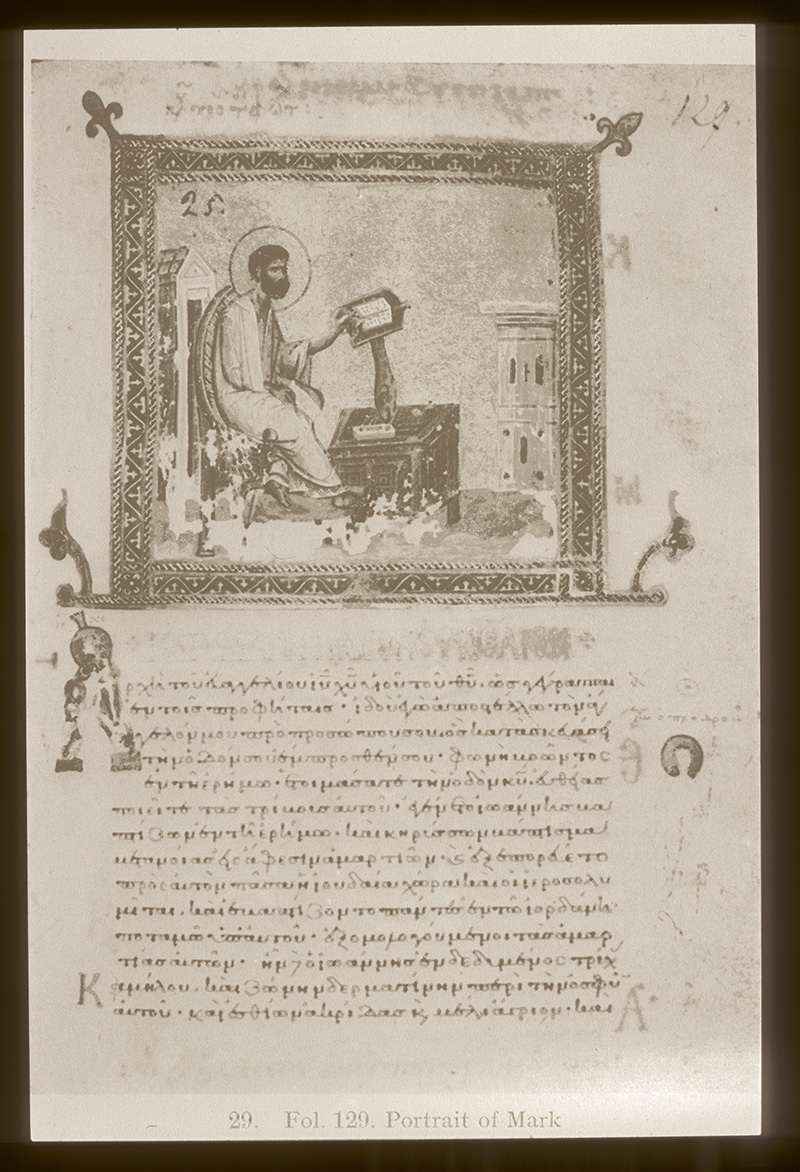 129.
25.
ρχὴ τοῦ εὐαγγελίου ἰῦ χῦ υἱοῦ τοῦ θῦ· ὡς γέγραπται
ἐν τοῖς προφήταις· ἰδοὺ ἐγὼ ἀποστέλλω τὸν ἄγ
γελόν μου πρὸ προσώπου σου· ὃς κατασκευάσει
τὴν ὁδόν σου ἔμπροσθέν σου· φωνὴ βοῶντος
ἐν τῇ ἐρήμω· ἑτοιμάσατε τὴν ὁδὸν κῦ· εὐθείας
ποιεῖτε τὰς τρίβους αὐτοῦ· ἐγένετο ἰωάννης βα
πτίζων ἐν τῇ ἐρήμω· καὶ κηρύσσων βάπτισμα
μετανοίας εἰς ἄφεσιν ἁμαρτιῶν· καὶ ἐξεπορεύετο
πρὸς αὐτὸν πᾶσα ἡ ἰουδαία χώρα· καὶ οἱ ἱεροσολυ
μῖται· καὶ ἐβαπτίζοντο πάντες ἐν τῶ ἰορδάνη
ποταμῶ ὑπ' αὐτοῦ· ἐξομολογούμενοι τὰς ἁμαρ
τίας αὐτῶν· ἦν δὲ ὁ ἰωάννης ἐνδεδυμένος τρίχ
Κ αμήλου· καὶ ζώνην δερματίνην περὶ τὴν ὀσφὺν
αὐτοῦ· καὶ ἐσθίων ἀκρίδας καὶ μέλι ἄγριον· καὶ
29. Fol. 129. Portrait of Mark